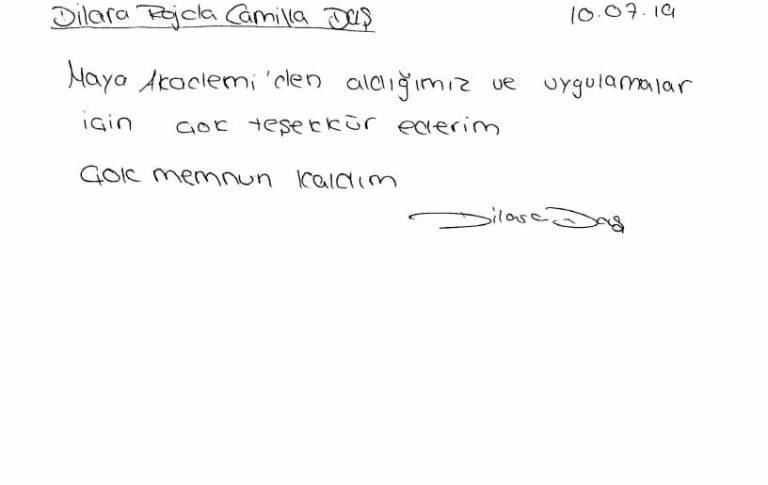 Dilara Rojda Camilla Daş 10.07.19
Maya Akademi'den aldığımız ve uygulamalar
için çok teşekkür ederim
Çok memnun kaldım
Dilara Daş